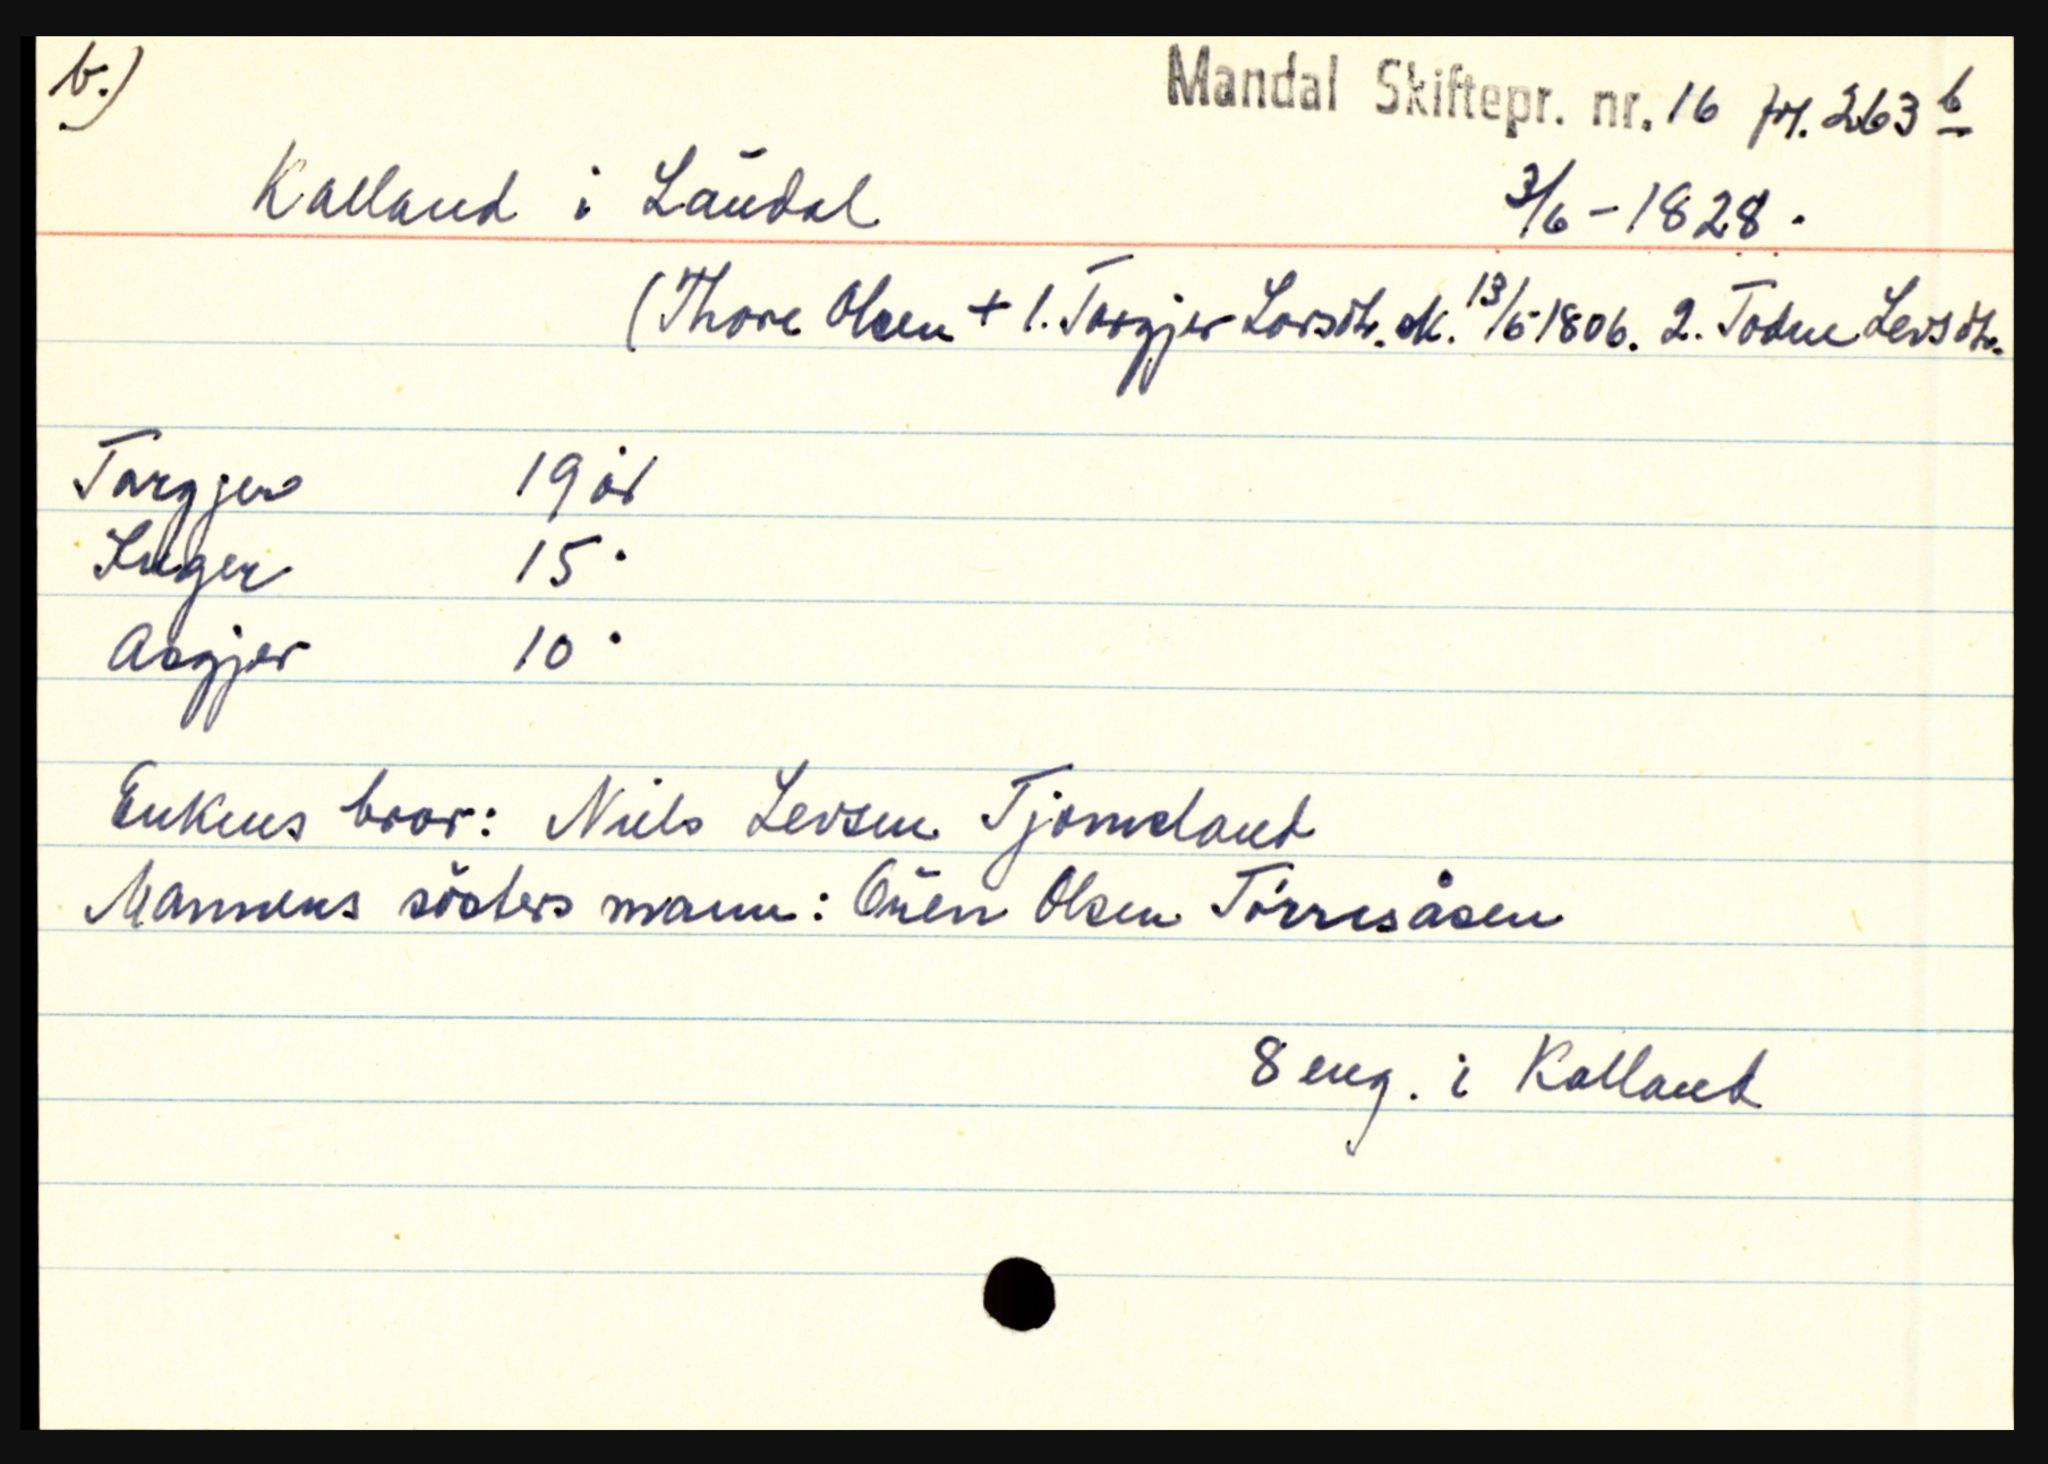 b.)
Mandal Skiftepr. nr. 16 fol. 263 b
Kalland i Laudal 3/6 - 1828.
(Thore Olsen + 1. Torgjer Larsdtr. sk. 13/5 1806. 2. Todne Levsdtr.
Torgjer 19 år
Inger 15 "
Asgjer 10 "
Enkens bror: Niels Levsen Tjomsland
Mannens sösters mann: Ouen Olsen Törresåsen
8 eng. i Kalland